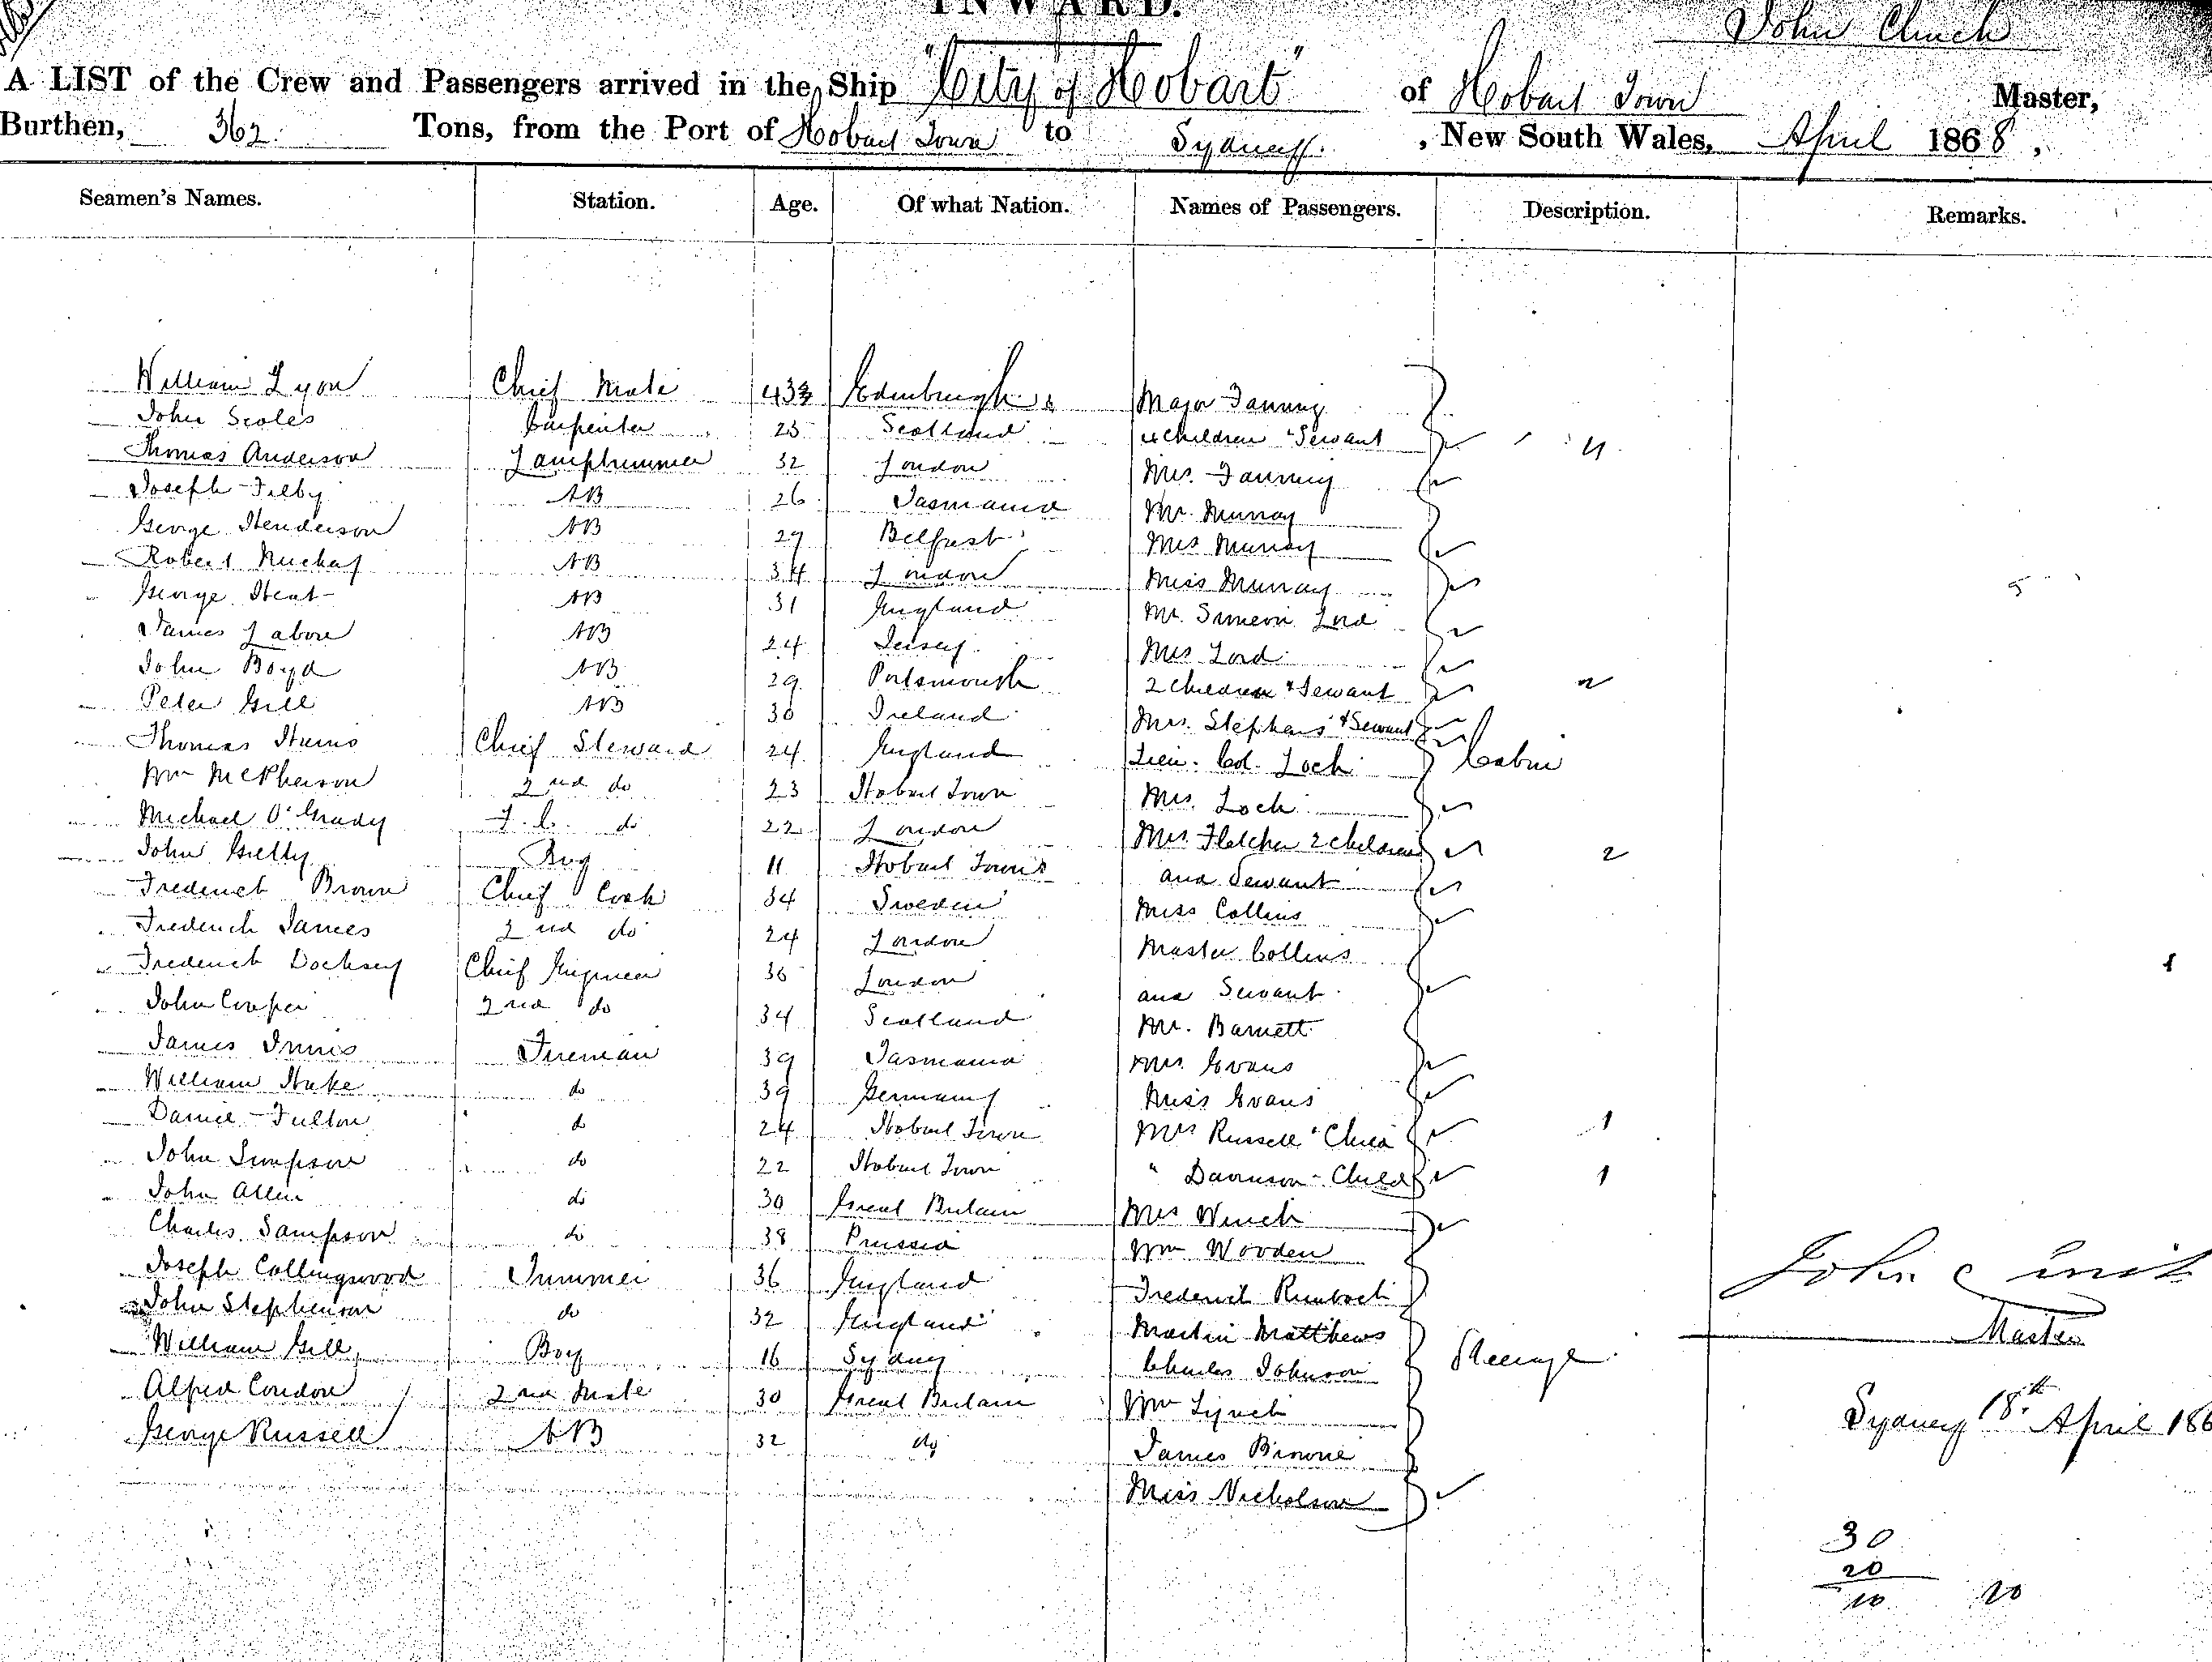 INWARD.
John Clinch
A LIST of the Crew and Passengers arrived in the Ship "City of Hobart" of Hobart Town Master,
Burthen, 362 Tons, from the Port of Hobart Town to Sydney , New South Wales, April 1868,
Seamen's Names. Station. Age. Of what Nation. Names of Passengers. Description. Remarks.
William Lyon Chief Mate 43 Edinburgh Major Fanning
John Scoles Carpenter 23 Scotland 4 Children & Servant 4
Thomas Anderson Lamptrimmer 32 London Mrs. Fanning
Joseph Filby AB 26 Tasmania Mr. Murray
George Henderson AB 29 Belfast Mrs Murray
Robert AB 34 London Miss Murray 5
George AB 31 England Mr. Simeon Lord
James Labore AB 24 Jersey Mrs Lord
John Boyd AB 29 Portsmouth 2 Children & Servant 2
Peter Gill AB 30 Ireland Mrs. Stephens & Servant
Thomas Chief Steward 24 England Lieu. Col. Loch Cabin
Wm McPherson 2nd do 23 Hobart Town Mrs. Loch
Michael O'Grady F.C. do 22 London Mrs Fletcher 2 Children 2
John Boy 11 Hobart Town and Servant
Frederick Brown Chief Cook 34 Sweden Miss Collins
Frederick James 2nd do 24 London Master Collins 1
Frederick Docksey Chief Engineer 36 London and Servant
John Cooper 2nd do 34 Scotland Mr. Barnett
James Innis Fireman 39 Tasmania Mrs. Evans
William Hake do 39 Germany Miss Evans
Daniel Fulton do 24 Hobart Town Mrs Russell & Child 1
John Simpson do 22 Hobart Town " Davidson - Child 1
John Allen do 30 Great Britain Mrs Winch
Charles Sampson do 38 Prussia Wm Wooden
Joseph Collingwood Trimmer 36 England Frederick
John Stephenson do 32 England Martin Matthews
William Gill Boy 16 Sydney Charles Johnson Steerage
Alfred Condon 2nd Mate 30 Great Britain Wm Lynch
George Russell AB 32 do James Browne
Miss Nicholson
John Clinch
Master
Sydney 18th April 186
30
20
10 20